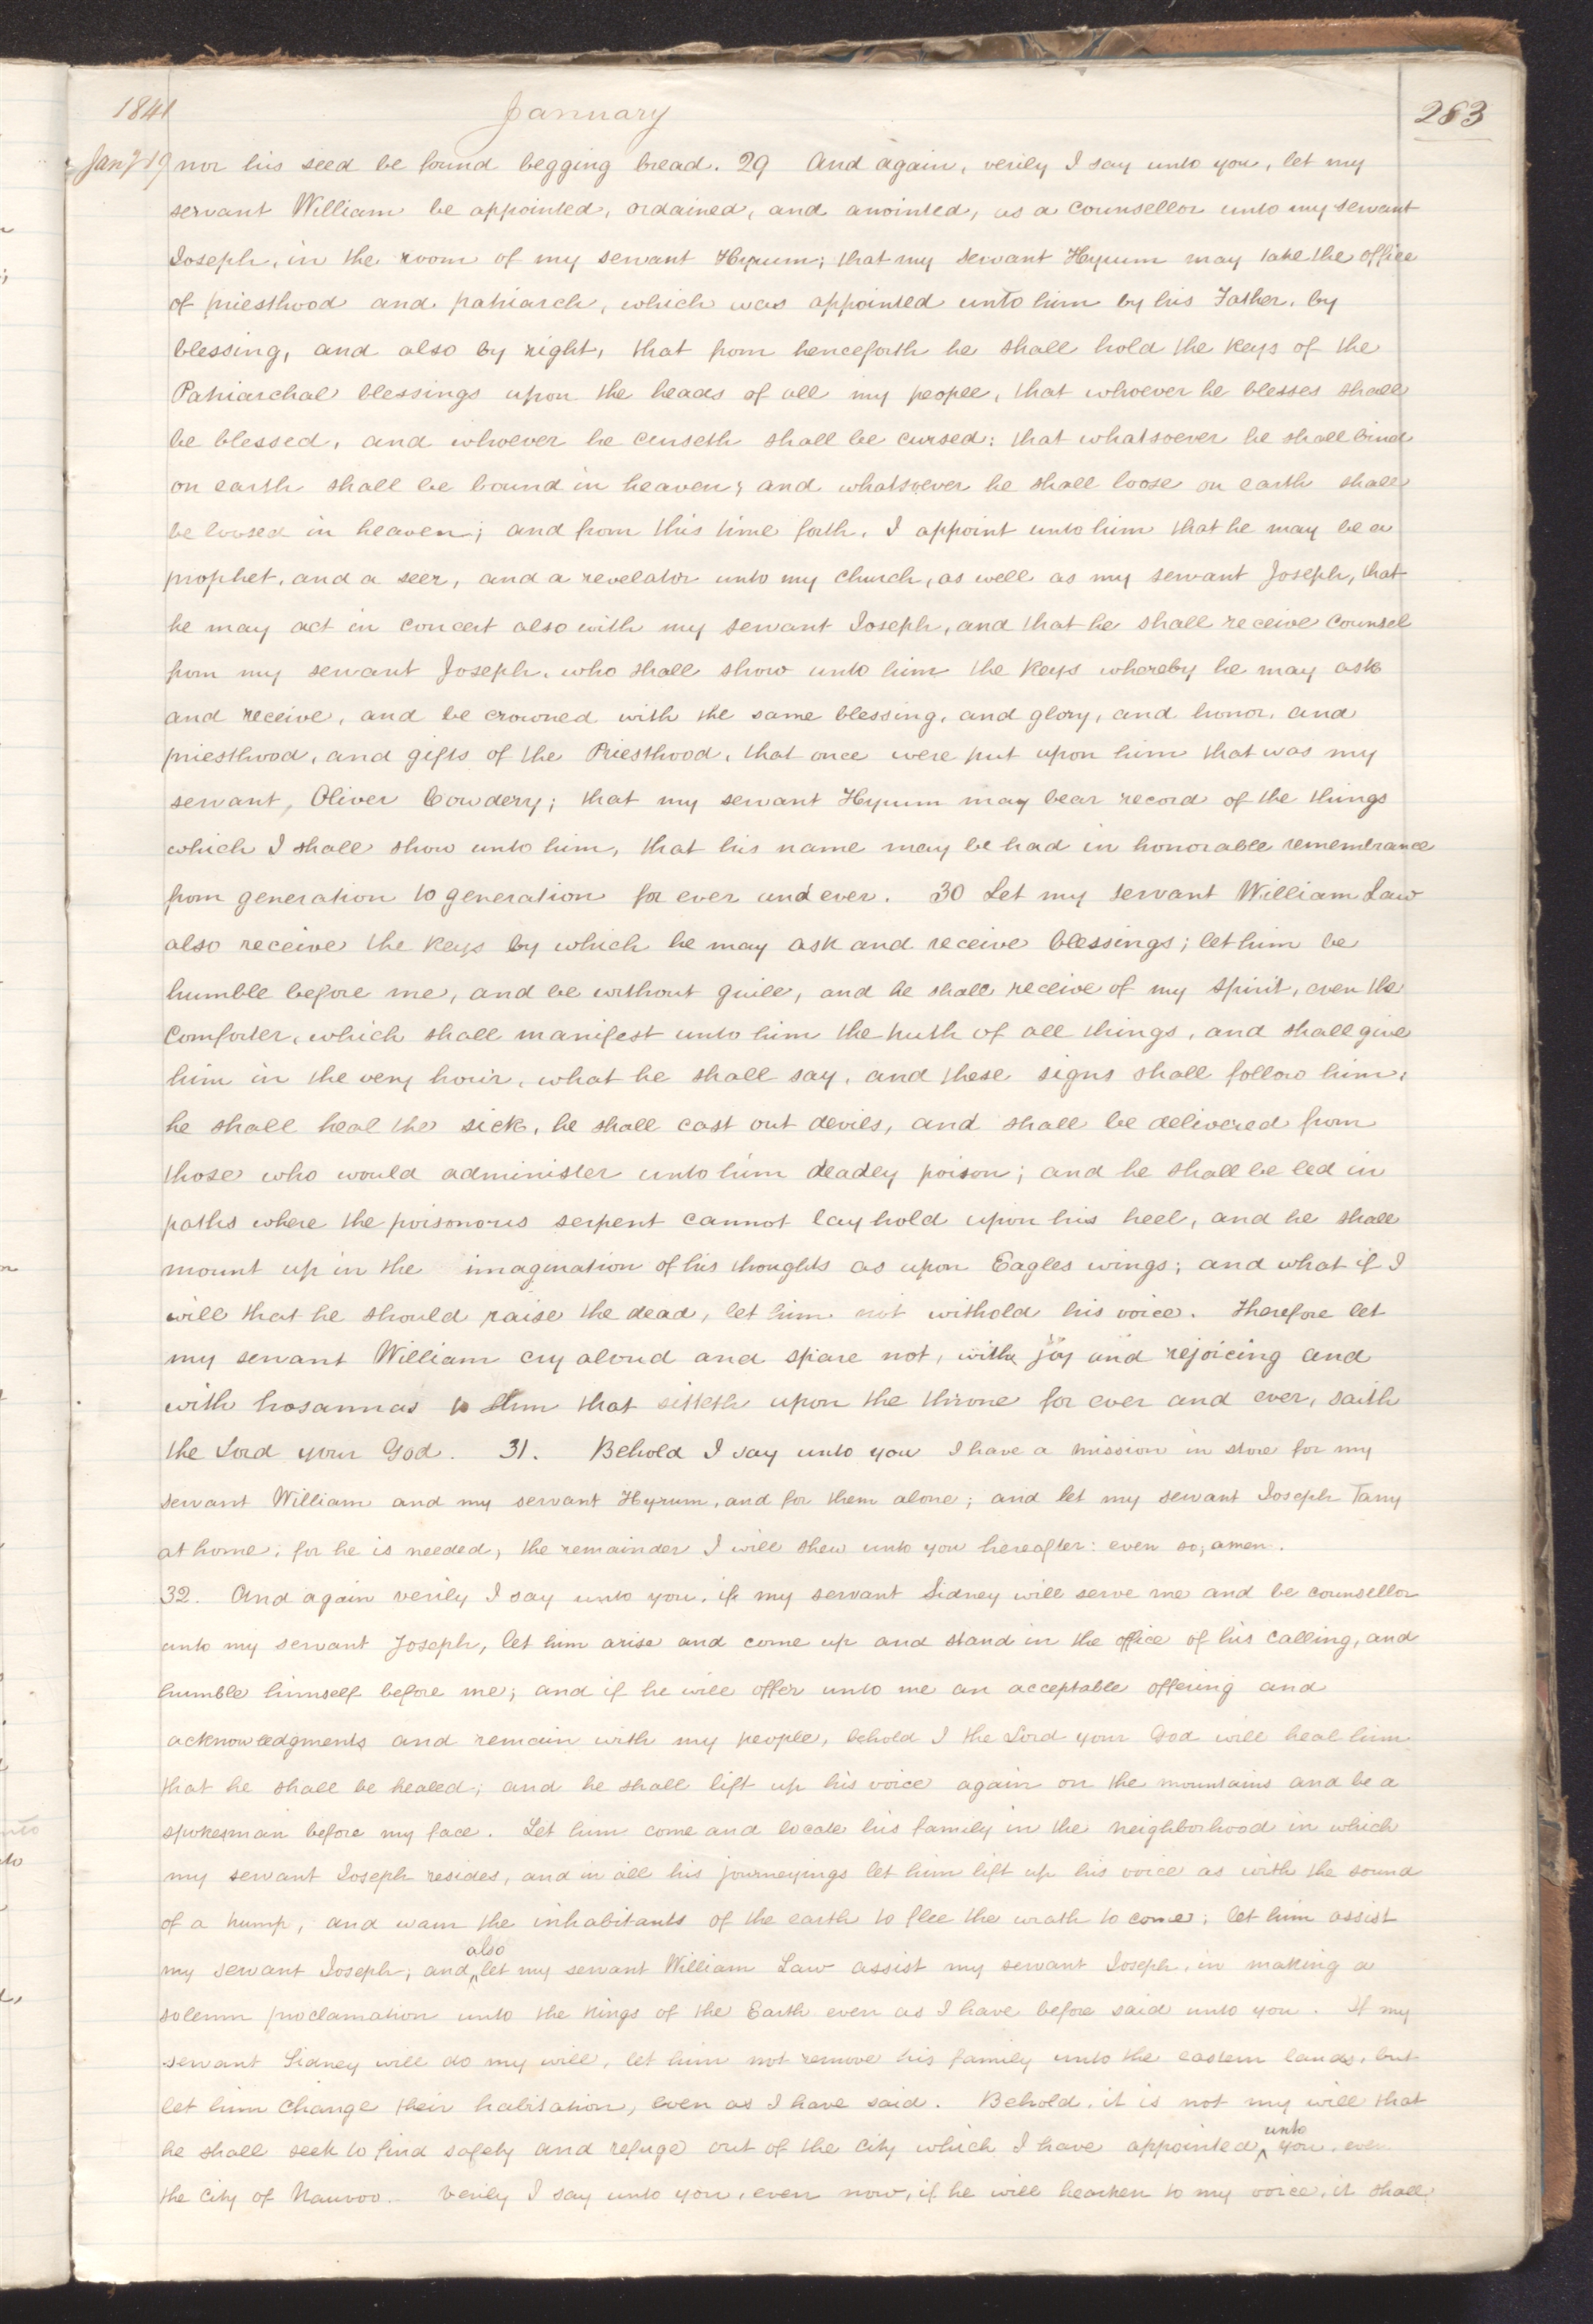 1841 January 283
Jany 19 nor his seed be found begging bread. 29 And again, verily I say unto you, let my
servant William be appointed, ordained, and anointed, as a counsellor unto my servant
Joseph, in the room of my servant Hyrum; that my servant Hyrum may take the office
of priesthood and patriarch, which was appointed unto him by his Father, by
blessing, and also by right, that from henceforth he shall hold the keys of the
Patriarchal blessings upon the heads of all my people, that whoever he blesses shall
be blessed, and whoever he curseth shall be cursed: that whatsoever he shall bind
on earth shall be bound in heaven; and whatsoever he shall loose on earth shall
be loosed in heaven; and from this time forth, I appoint unto him that he may be a
prophet, and a seer, and a revelator unto my church, as well as my servant Joseph, that
he may act in concert also with my servant Joseph, and that he shall receive counsel
from my servant Joseph, who shall show unto him the keys whereby he may ask
and receive, and be crowned with the same blessing, and glory, and honor, and
priesthood, and gifts of the Priesthood, that once were put upon him that was my
servant, Oliver Cowdery; that my servant Hyrum may bear record of the things
which I shall show unto him, that his name may be had in honorable remembrance
from generation to generation for ever and ever. 30 Let my servant William Law
also receive the keys by which he may ask and receive blessings; let him be
humble before me, and be without guile, and he shall receive of my spirit, even the
Comforter, which shall manifest unto him the truth of all things, and shall give
him in the very hour, what he shall say, and these signs shall follow him,
he shall heal the sick, he shall cast out devils, and shall be delivered from
those who would administer unto him deadly poison; and he shall be led in
paths where the poisonous serpent cannot lay hold upon his heel, and he shall
mount up in the imagination of his thoughts as upon Eagles wings; and what if I
will that he should raise the dead, let him not withold his voice. Therefore let
my servant William cry aloud and spare not, with joy and rejoicing and
with hosannas to Him that sitteth upon the throne for ever and ever, saith
the Lord your God. 31. Behold I say unto you I have a mission in store for my
servant William and my servant Hyrum, and for them alone; and let my servant Joseph Tarry
at home, for he is needed, the remainder I will shew unto you hereafter: even so, amen.
32. And again verily I say unto you, if my servant Sidney will serve me and be counsellor
unto my servant Joseph, let him arise and come up and stand in the office of his calling, and
humble himself before me; and if he will offer unto me an acceptable offering and
acknowledgments and remain with my people, behold I the Lord your God will heal him
that he shall be healed; and he shall lift up his voice again on the mountains and be a
spokesman before my face. Let him come and locate his family in the neighborhood in which
my servant Joseph resides, and in all his journeyings let him lift up his voice as with the sound
of a trump, and warn the inhabitants of the earth to flee the wrath to come; let him assist
my servant Joseph; and also let my servant William Law assist my servant Joseph, in making a
solemn proclamation unto the kings of the Earth even as I have before said unto you. If my
servant Sidney will do my will, let him not remove his family unto the eastern lands, but
let him change their habitation, even as I have said. Behold, it is not my will that
he shall seek to find safety and refuge out of the city which I have appointed unto you, even
the City of Nauvoo. Verily I say unto you, even now, if he will hearken to my voice, it shall